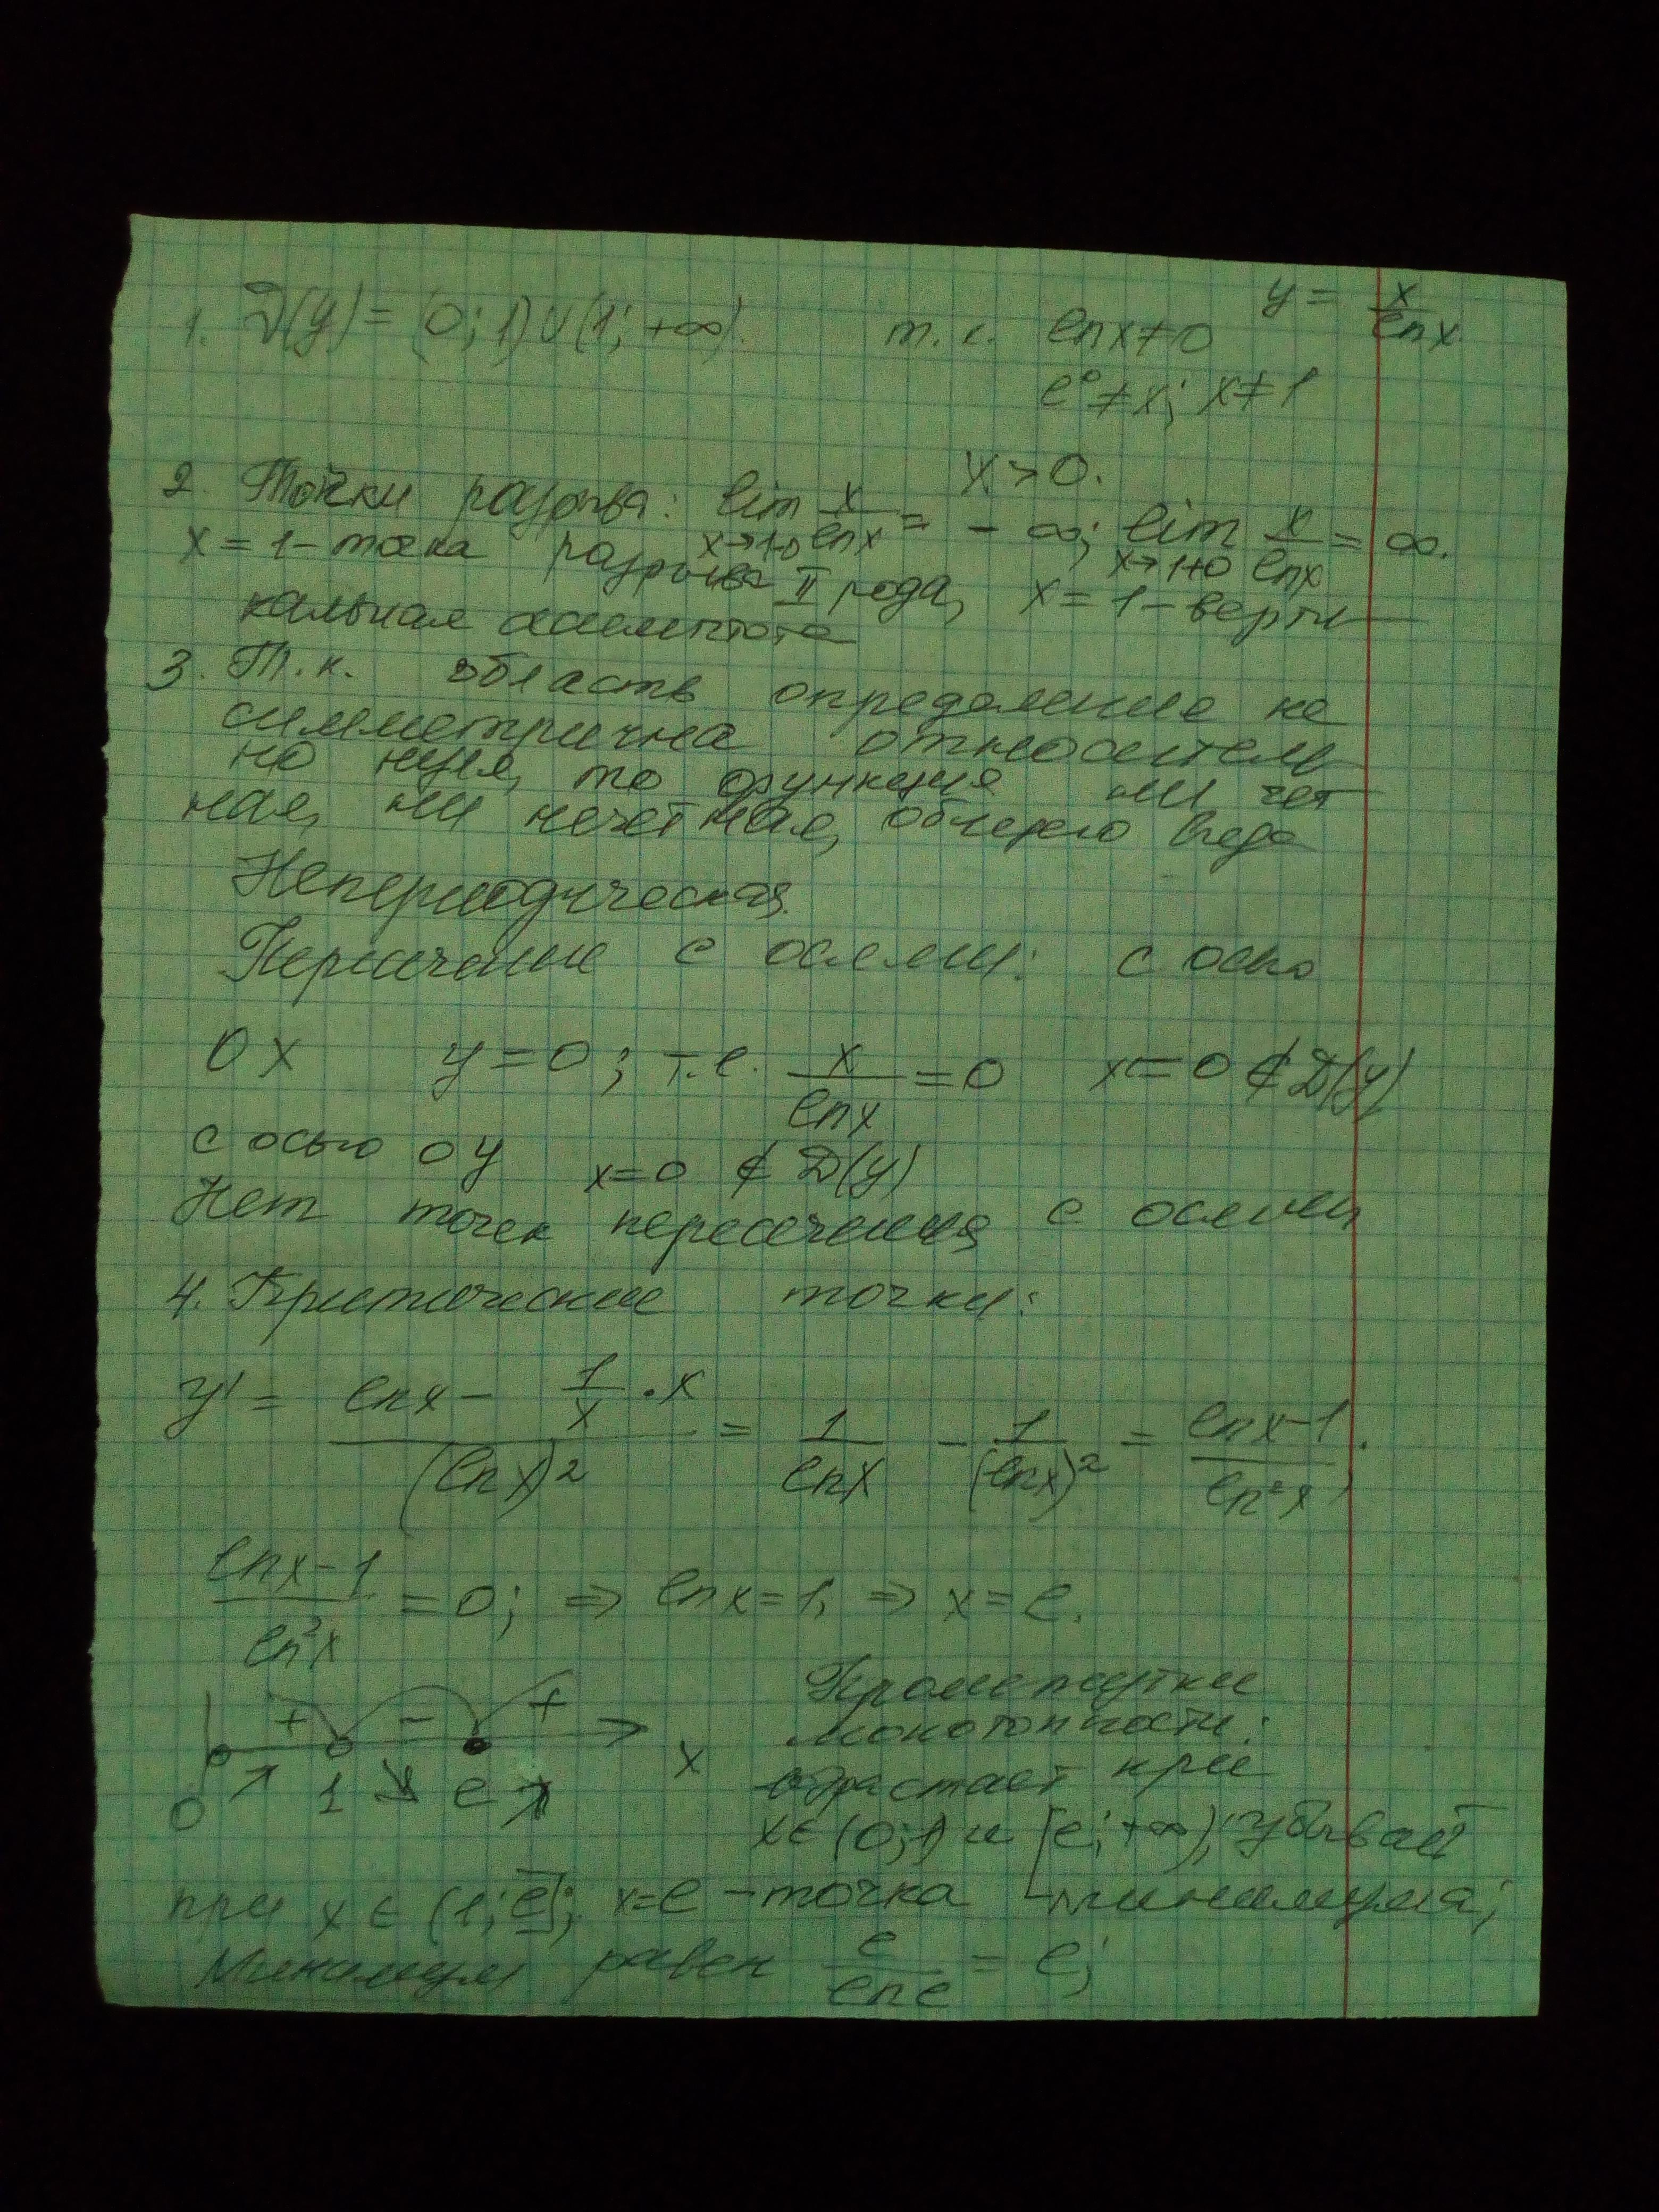 y = x/lnx
1. D(y) = (0; 1)∪(1; +∞). т. е. lnx≠0
e⁰ ≠ x; x ≠ 1
x > 0.
2. Точки разрыва: lim x→1-0 x/lnx = - ∞; lim x→1+0 x/lnx = ∞.
x = 1 - точка разрыва II рода, x = 1 - верти
кальная асимптота
3. Т. к. область определение не
симметрична относитель
но нуля, то функция ни чет
ная, ни нечетная, общего вида
Непериодическая.
Пересечение с осями: с осью
OX y = 0; т.е. x/lnx = 0 x = 0 ∉ D(y)
с осью OY x = 0 ∉ D(y)
Нет точек пересечения с осями
4. Критические точки:
y' = (lnx - 1/x · x)/(lnx)² = 1/lnx - 1/(lnx)² = (lnx-1)/ln²x;
(lnx-1)/ln²x = 0; ⇒ lnx = 1, ⇒ x = e.
+ - +
0 ↗ 1 ↘ e ↗ x
Промежутки
монотонности:
возрастает при
x ∈ (0; 1) и [e; +∞); убывает
при x ∈ (1; e]; x = e - точка минимума;
Минимум равен e/lne = e;